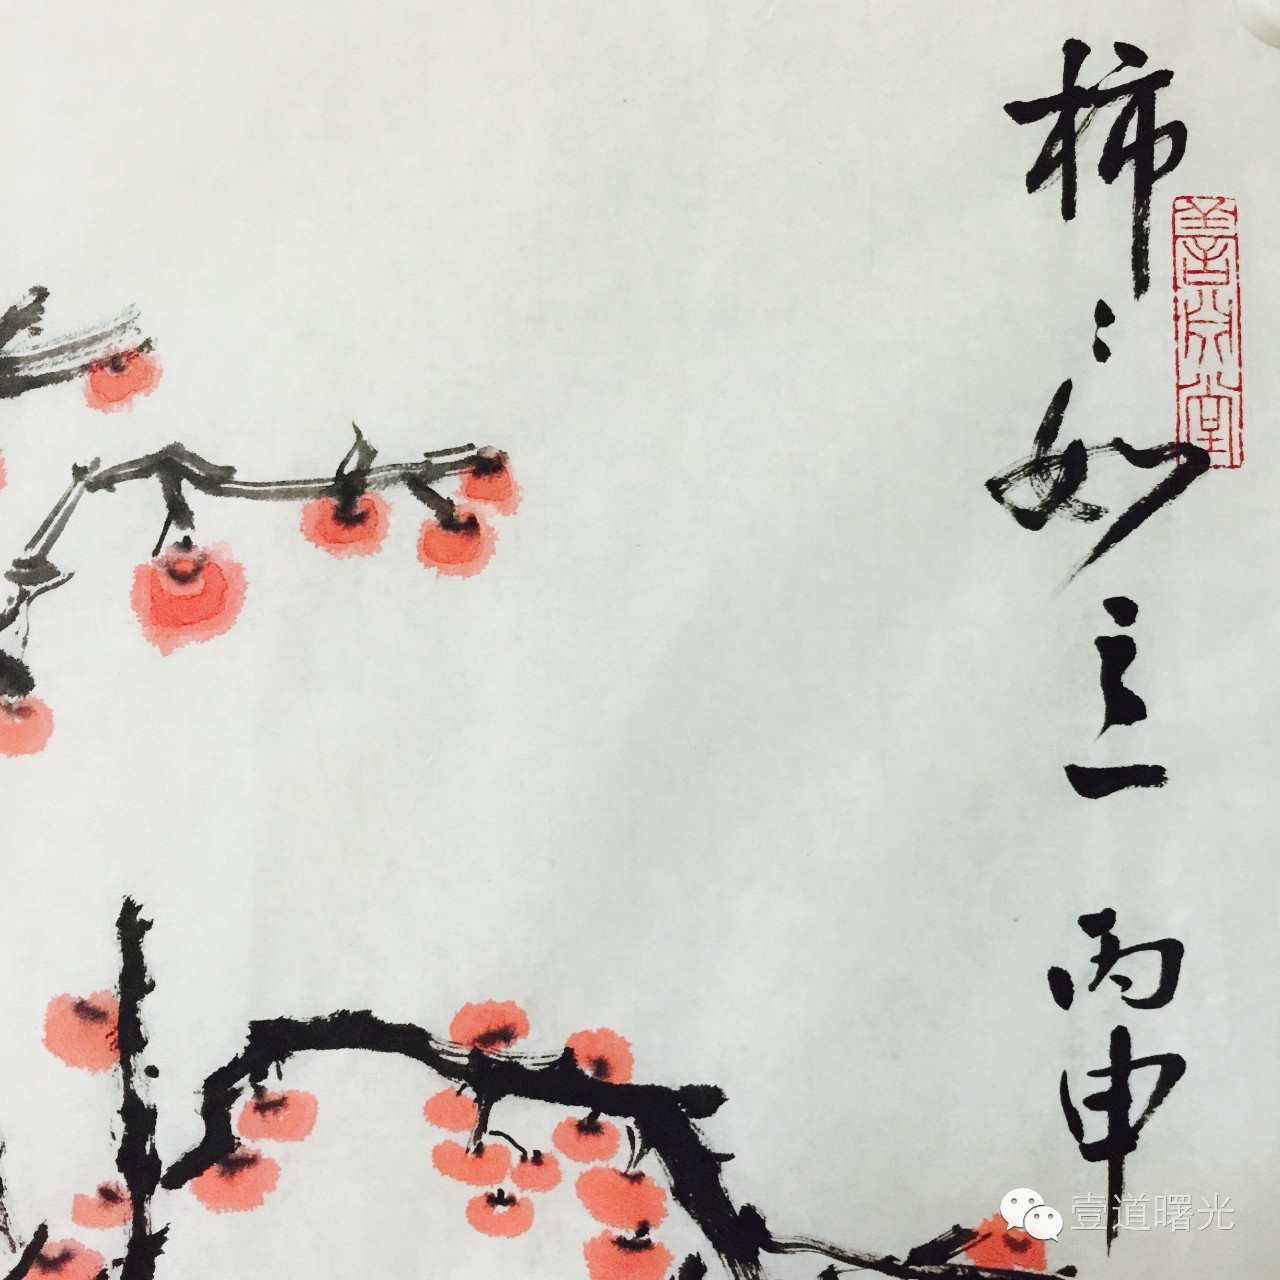 柿〻如意 丙申
壹道曙光